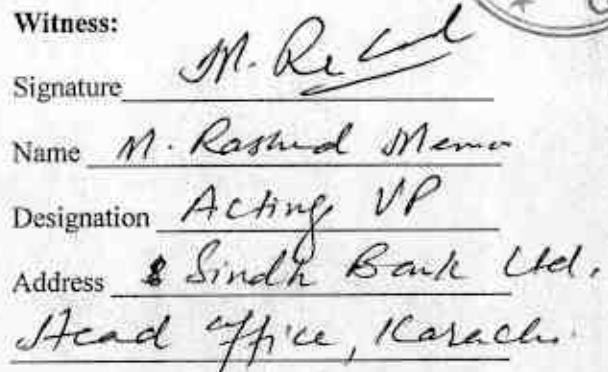 Witness:
Signature M. Rashid
Name M. Rashid Memon
Designation Acting VP
Address Sindh Bank Ltd.
Head Office, Karachi.